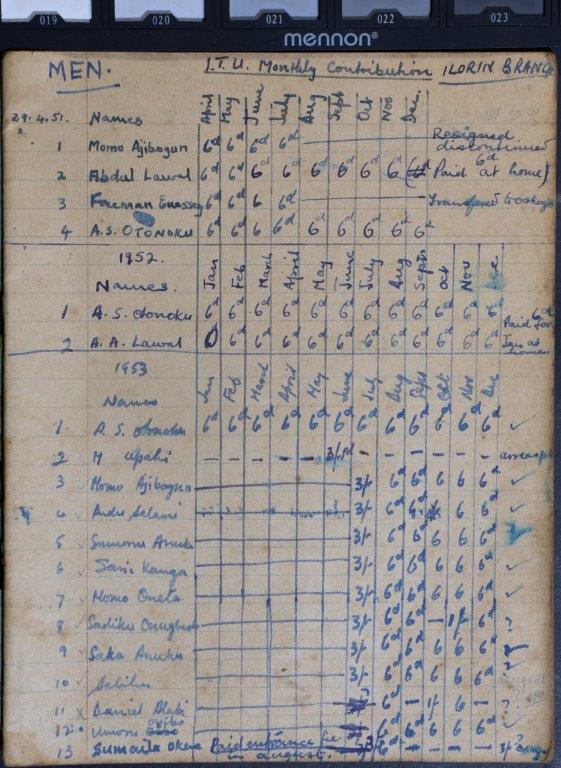 019 020 021 022 023
mennon®
MEN. I.T.U. Monthly Contribution ILORIN BRANCH
29.4.51. Names April May June July Aug Sept Oct Nov Dec.
1 Momo Ajibogun 6d 6d 6d 6d Resigned discontinued
2 Abdul Lawal 6d 6d 6d 6d 6d 6d 6d 6d 6d (Paid 6d at home)
3 6d 6d 6 6d
4 A.S. OTONOKU 6d 6d 6 6d 6d 6d 6d 6d 6d
1952. Jan Feb March April May June July Aug Sept Oct Nov
Names.
1 A. S. Otonoku 6d 6d 6d 6d 6d 6d 6d 6d 6d 6d 6d 6d
2 A. A. Lawal 0 6d 6d 6d 6d 6d 6d 6d 6d 6d 6d 6d Paid 6d for Jan at home
1953 Jan Feb March April May June July Aug Sept Oct Nov Dec
Names
1. A. S. Otonoku 6d 6d 6d 6d 6d 6d 6d 6d 6d 6d 6d 6d ✓
2 M – – – – – – – – – – –
3 Momo Ajibogun 3/- 6d 6d 6 6 6d ✓
4 Salami 3/- 6d 6 6 6d ✓
5 Sumonu Anuku 3/- 6d 6d 6 6 6d
6 Sani Kanga 3/- 6d 6d 6 6 6d ✓
7 Momo Oneta 3/- 6d 6d 6 6 6d ✓
8 Sadiku 3/- 6d 6d – 6d ?
9 Saka Anuku 3/- 6d 6d 6 6 6d
10 Salihu 3/- 6d 6d 6 6 6d
11 x Daniel Alabi 6d – 6 ?
12 Umoru 6d 6 6 6d ✓
13 Sumaila Okene Paid entrance fee in august. 6d – – 3/-?